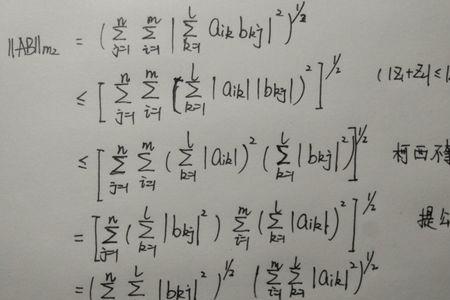 ||AB||m₂ = (∑_{j=1}^{n} ∑_{i=1}^{m} |∑_{k=1}^{l} a_{ik} b_{kj}|²)^{1/2}
≤ [∑_{j=1}^{n} ∑_{i=1}^{m} (∑_{k=1}^{l} |a_{ik}| |b_{kj}|)²]^{1/2} (|Z₁+Z₂| ≤ |
≤ [∑_{j=1}^{n} ∑_{i=1}^{m} (∑_{k=1}^{l} |a_{ik}|)² (∑_{k=1}^{l} |b_{kj}|²)]^{1/2} 柯西不
= [∑_{j=1}^{n} (∑_{k=1}^{l} |b_{kj}|²) ∑_{i=1}^{m} (∑_{k=1}^{l} |a_{ik}|)²]^{1/2} 提
= (∑^{n} ∑^{l} |b_{kj}|²)^{1/2} (∑^{m} ∑^{l} |a_{ik}|²)^{1/2}